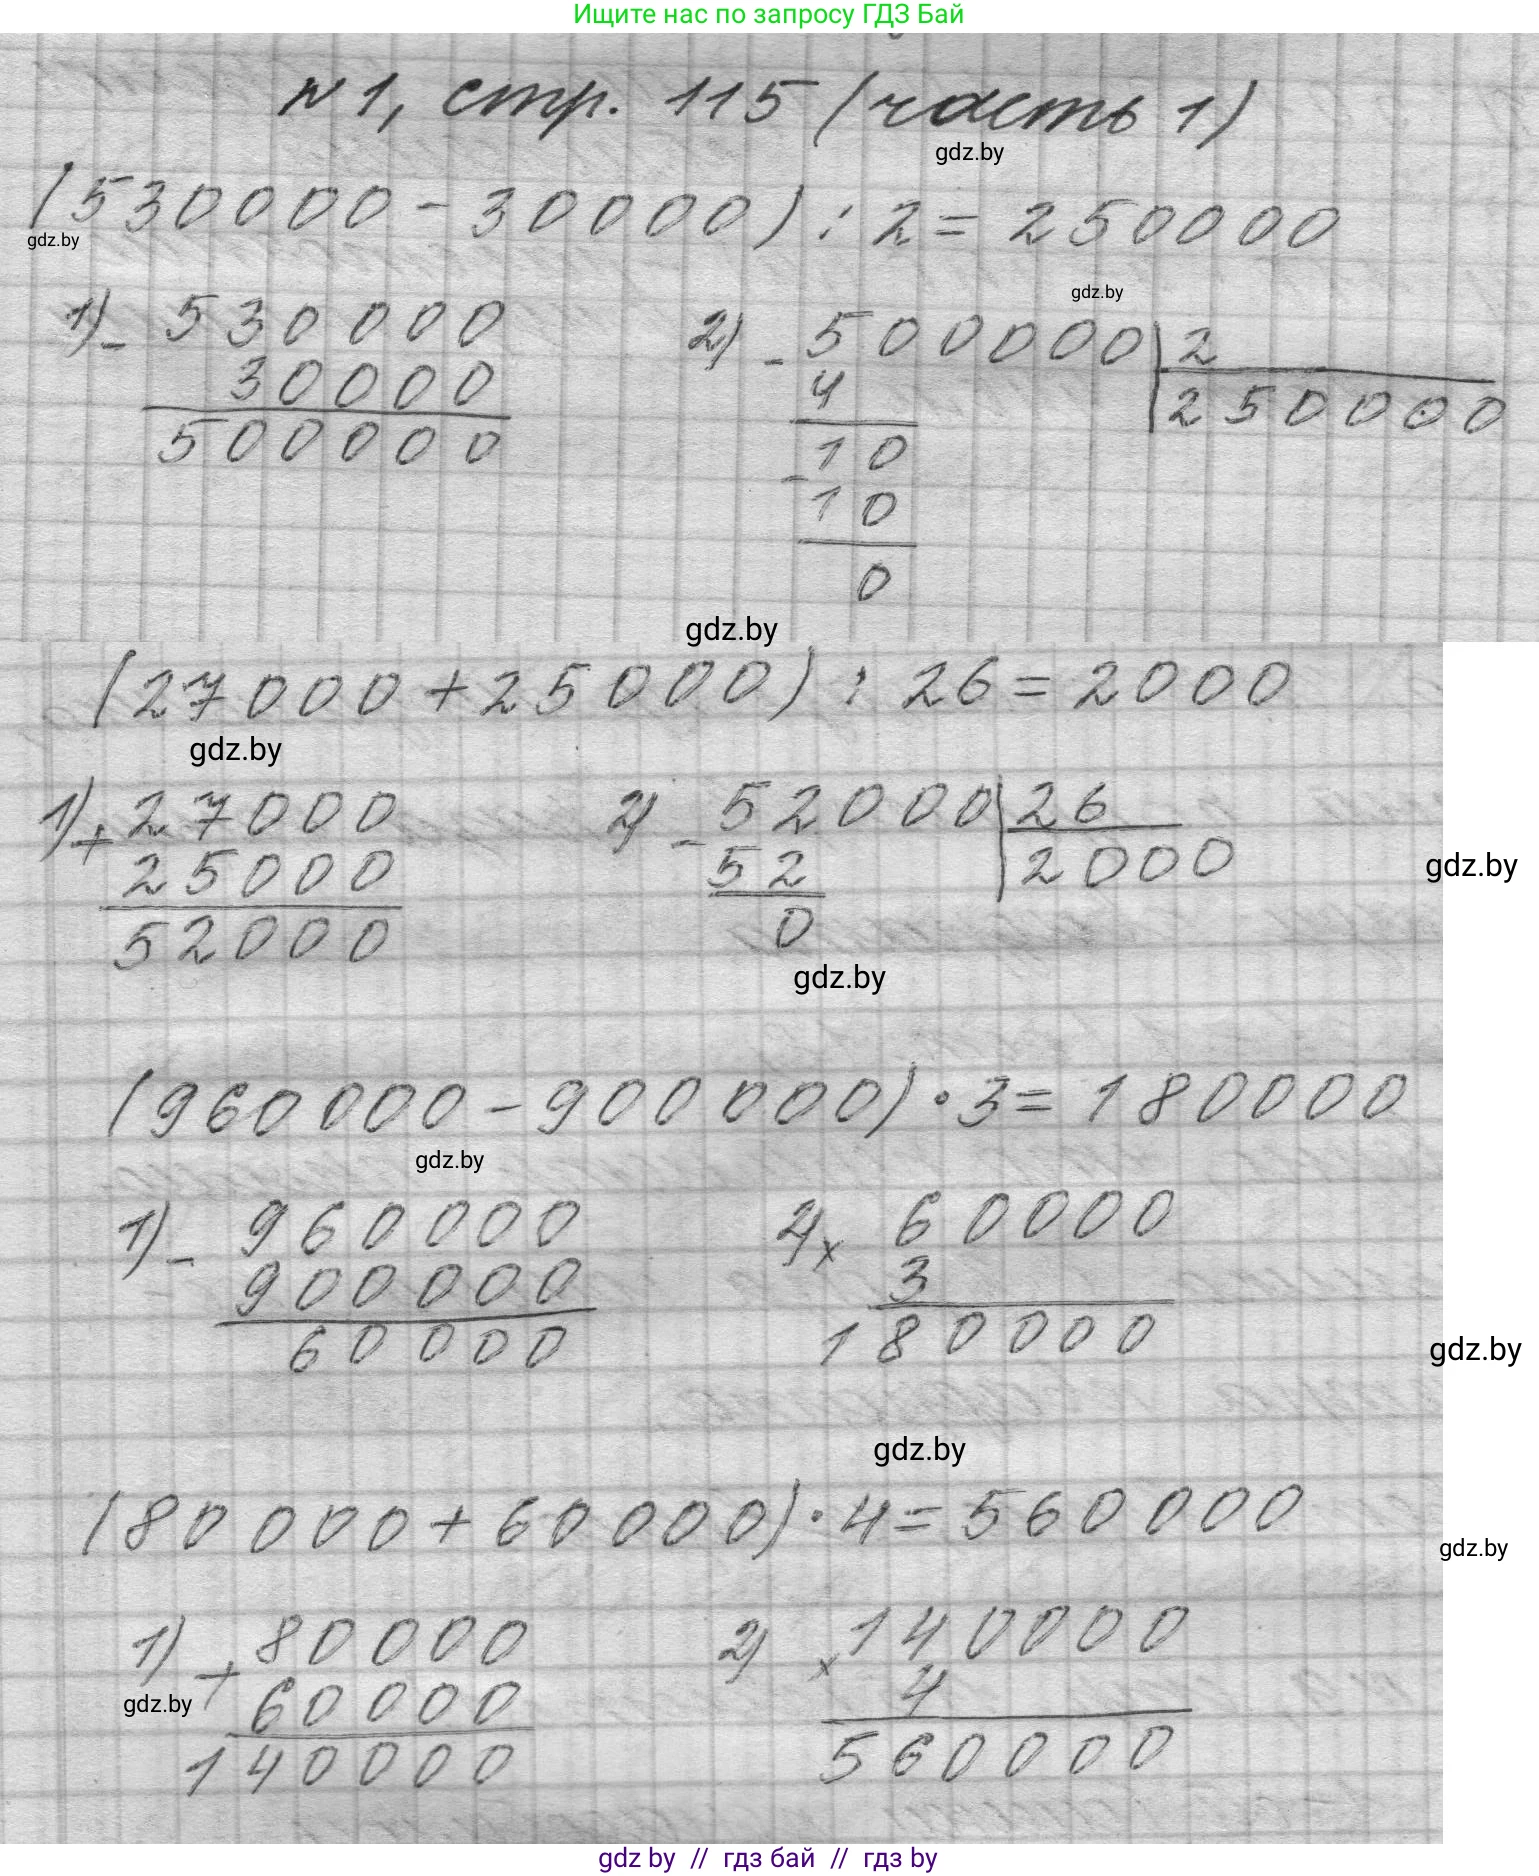 Ищите нас по запросу ГДЗ Бай
№1, стр. 115 (часть 1)
gdz.by
(530000 - 30000) : 2 = 250000
gdz.by
gdz.by
1) - 530000
30000
500000
2) - 500000 | 2
4 | 250000
- 10
10
0
gdz.by
(27000 + 25000) : 26 = 2000
gdz.by
1) + 27000
25000
52000
2) - 52000 | 26
52 | 2000
0
gdz.by
gdz.by
(960000 - 900000) · 3 = 180000
gdz.by
1) - 960000
900000
60000
2) × 60000
3
180000
gdz.by
gdz.by
(80000 + 60000) · 4 = 560000
gdz.by
1) + 80000
60000
140000
gdz.by
2) × 140000
4
560000
gdz by // гдз бай // гдз by